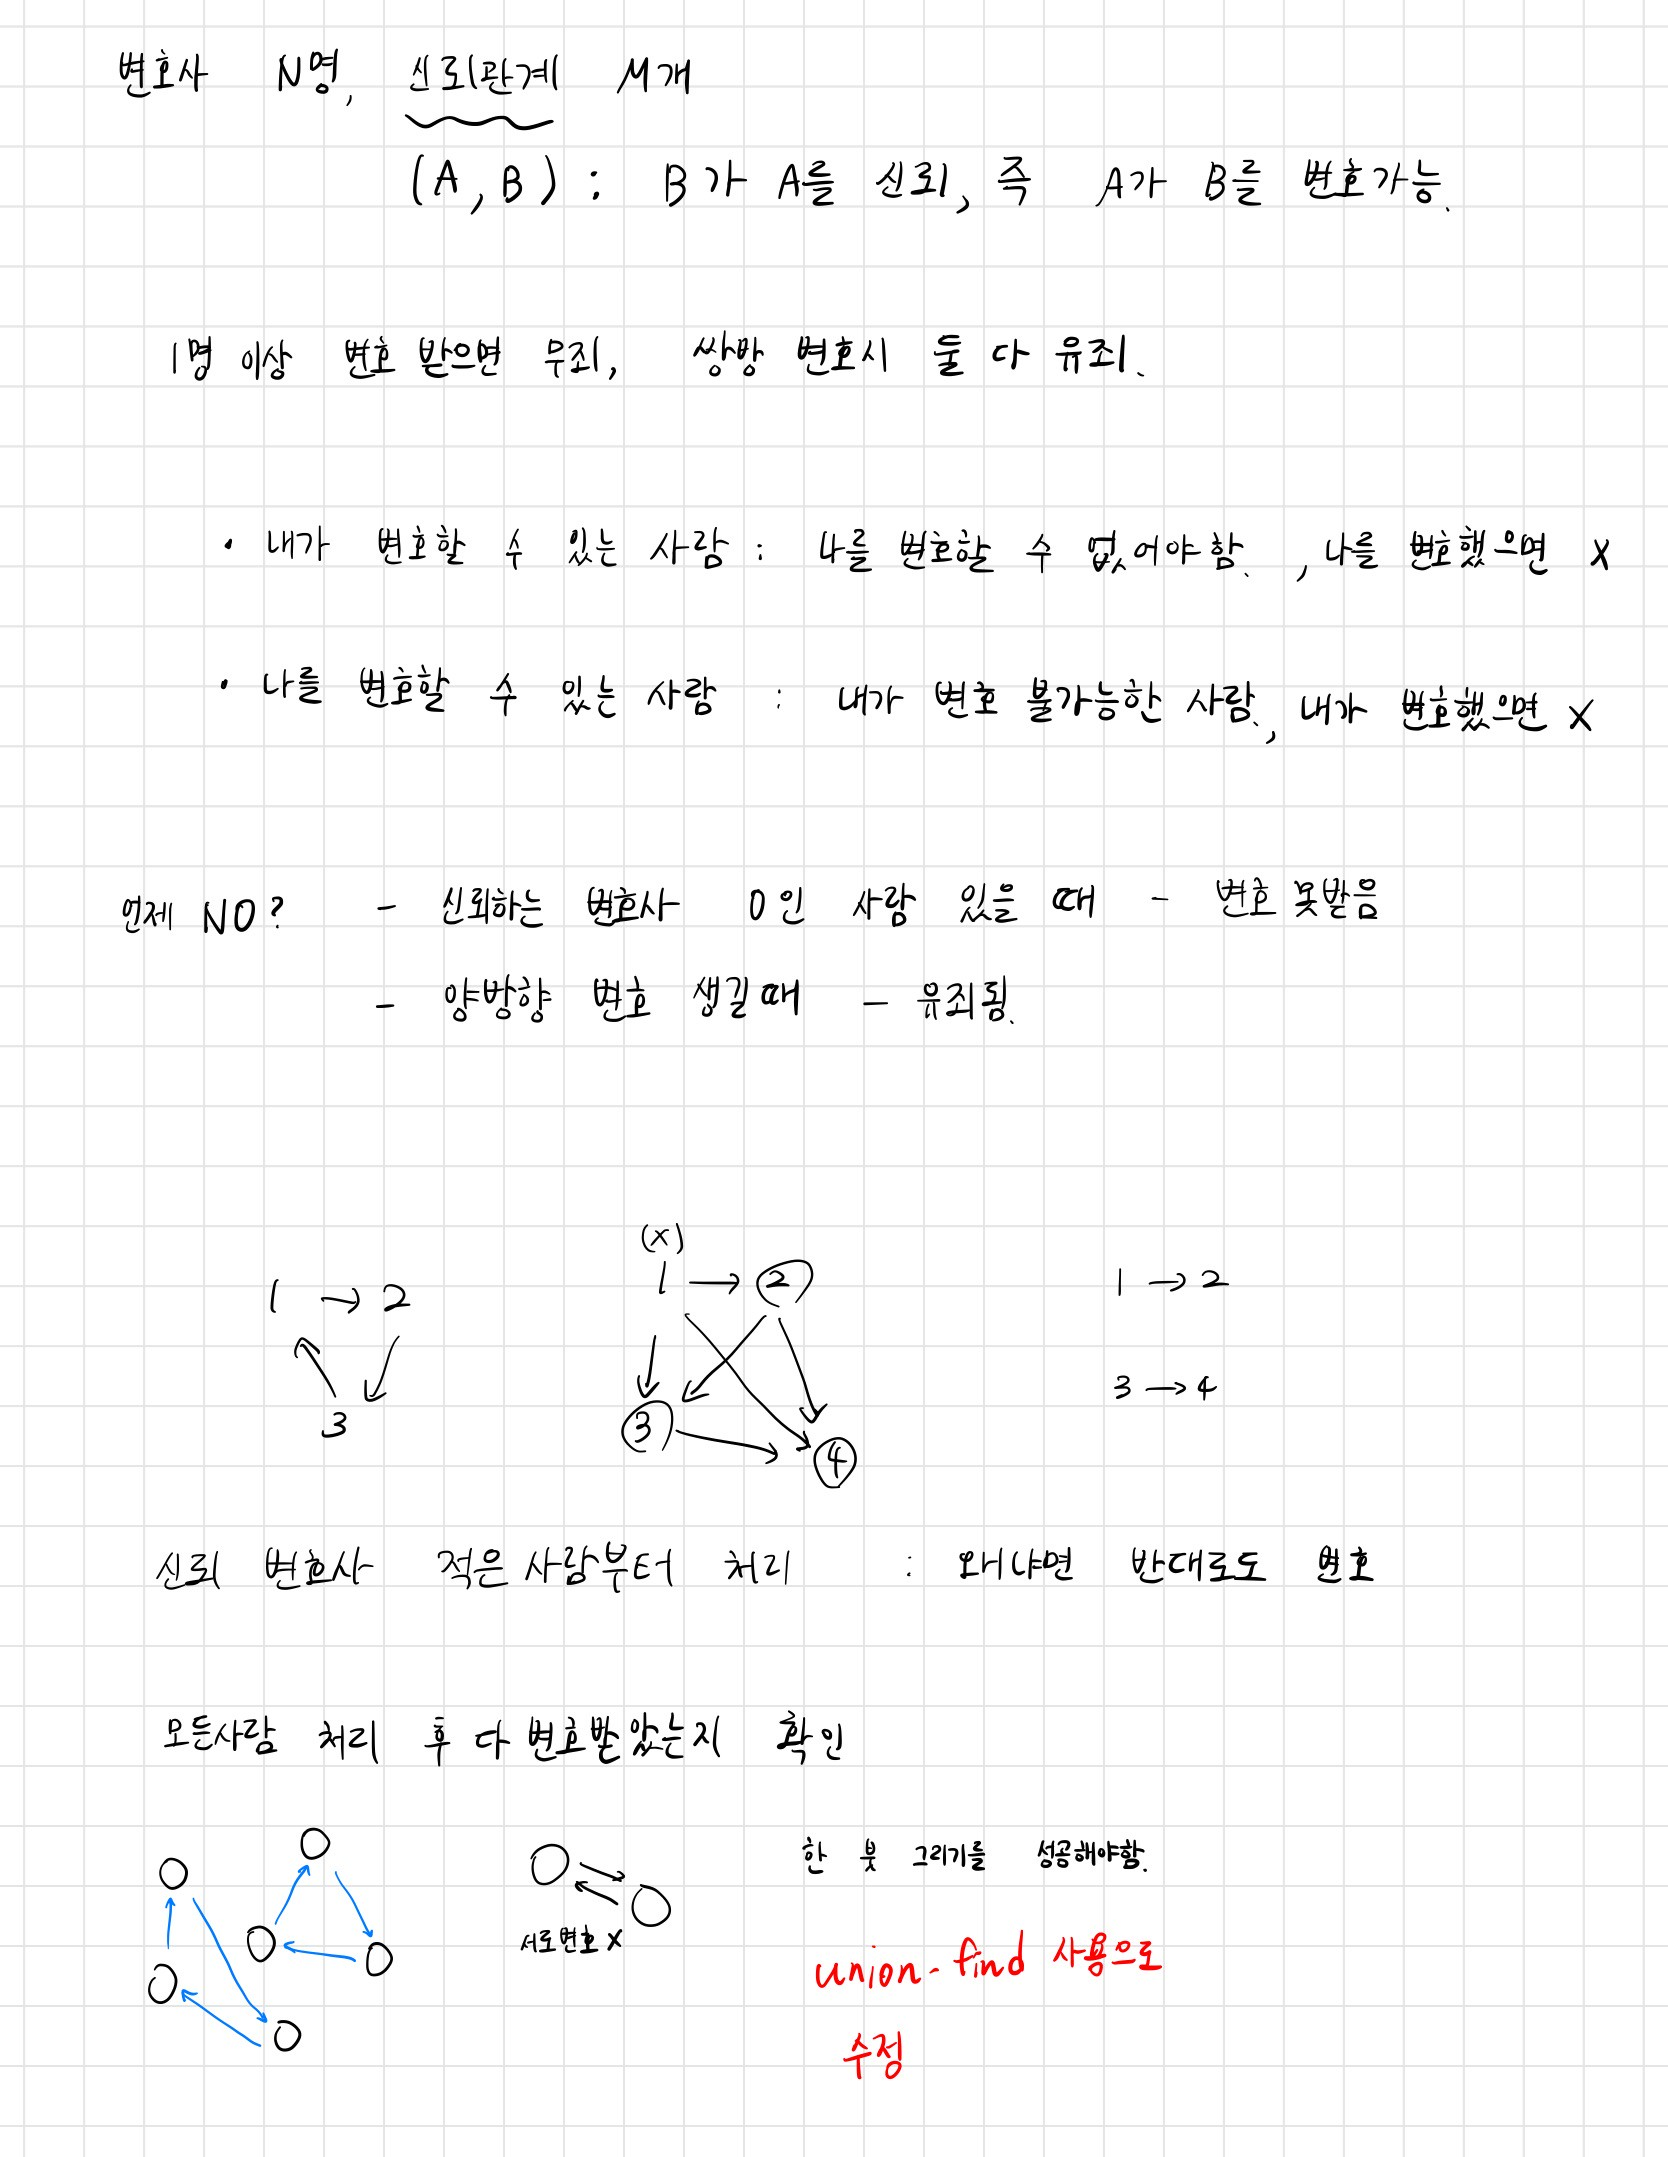 변호사 N명, 신뢰관계 M개
(A, B) : B가 A를 신뢰, 즉 A가 B를 변호가능.
1명 이상 변호 받으면 무죄, 쌍방 변호시 둘 다 유죄.
• 내가 변호할 수 있는 사람 : 나를 변호할 수 없어야함. , 나를 변호했으면 X
• 나를 변호할 수 있는 사람 : 내가 변호 불가능한 사람., 내가 변호했으면 X
언제 NO? - 신뢰하는 변호사 0인 사람 있을 때 - 변호 못받음
- 양방향 변호 생길때 - 유죄됨.
(x)
1 → 2
3
1 → 2
3
4
1 → 2
3 → 4
신뢰 변호사 적은 사람부터 처리 : 왜냐면 반대로도 변호
모든사람 처리 후 다 변호받았는지 확인
서로변호 X
한 붓 그리기를 성공해야함.
union-find 사용으로
수정